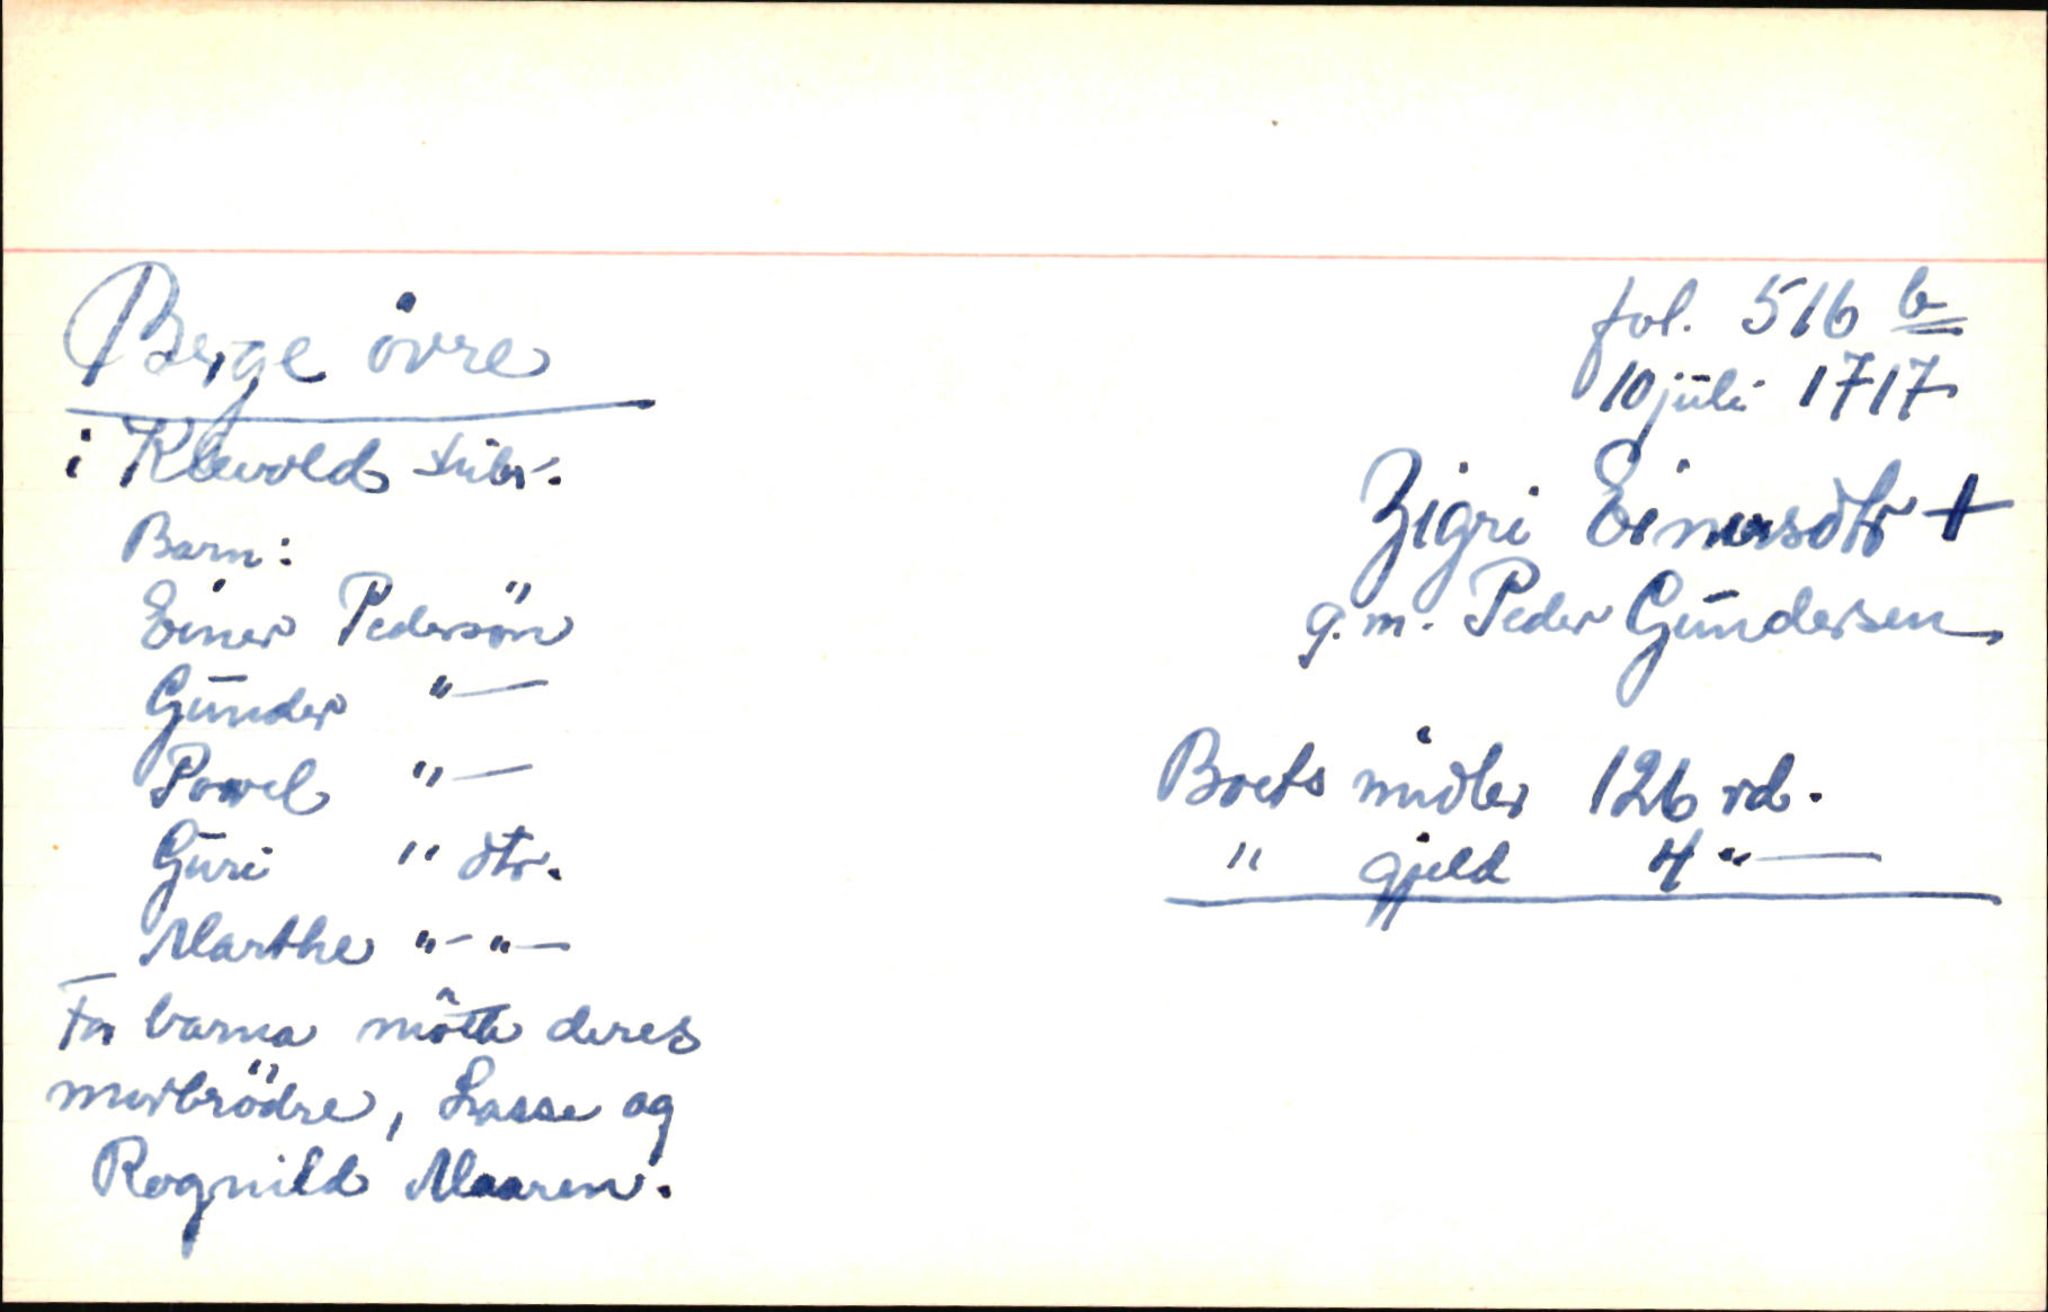 Berge övre
i Klevold skibr.
Barn:
Einer Pedersön
Gunder "—
Powel "—
Guri " dtr.
Marthe "—"—
For barna mötte deres
morbrödre, Lasse og
Rognild Maaren.
fol. 516 b
10 juli 1717
Zigri Einersdtr +
g.m. Peder Gundersen
Boets midler 126 rd.
" gjeld 4 "—